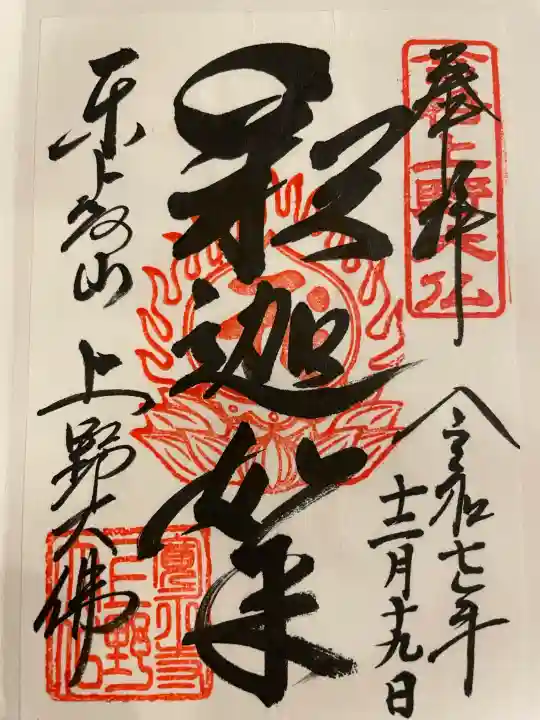 奉拝
令和七年
十二月十九日
釈迦如来
東叡山
上野大佛
上野大仏
寛永寺
上野
大仏